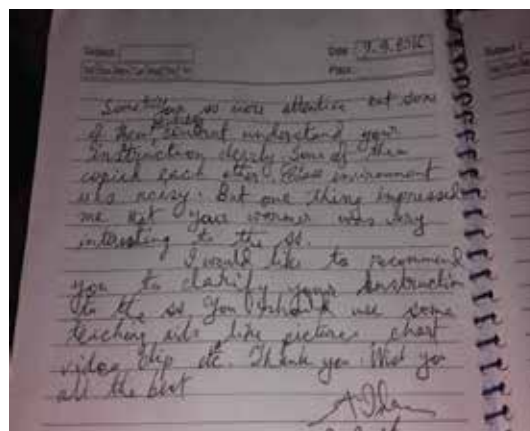 Subject
Date: 9.9.2016
Place:
Some ss were attentive but some
of them, couldn't understand your
instruction clearly. Some of them
copied each other. Class environment
was noisy. But one thing impressed
me that your warmer was very
interesting to the ss.
I would like to recommend
you to clarify your instruction
to the ss. You should use some
teaching aids like picture, chart
video clip etc. Thank you. Wish you
all the best